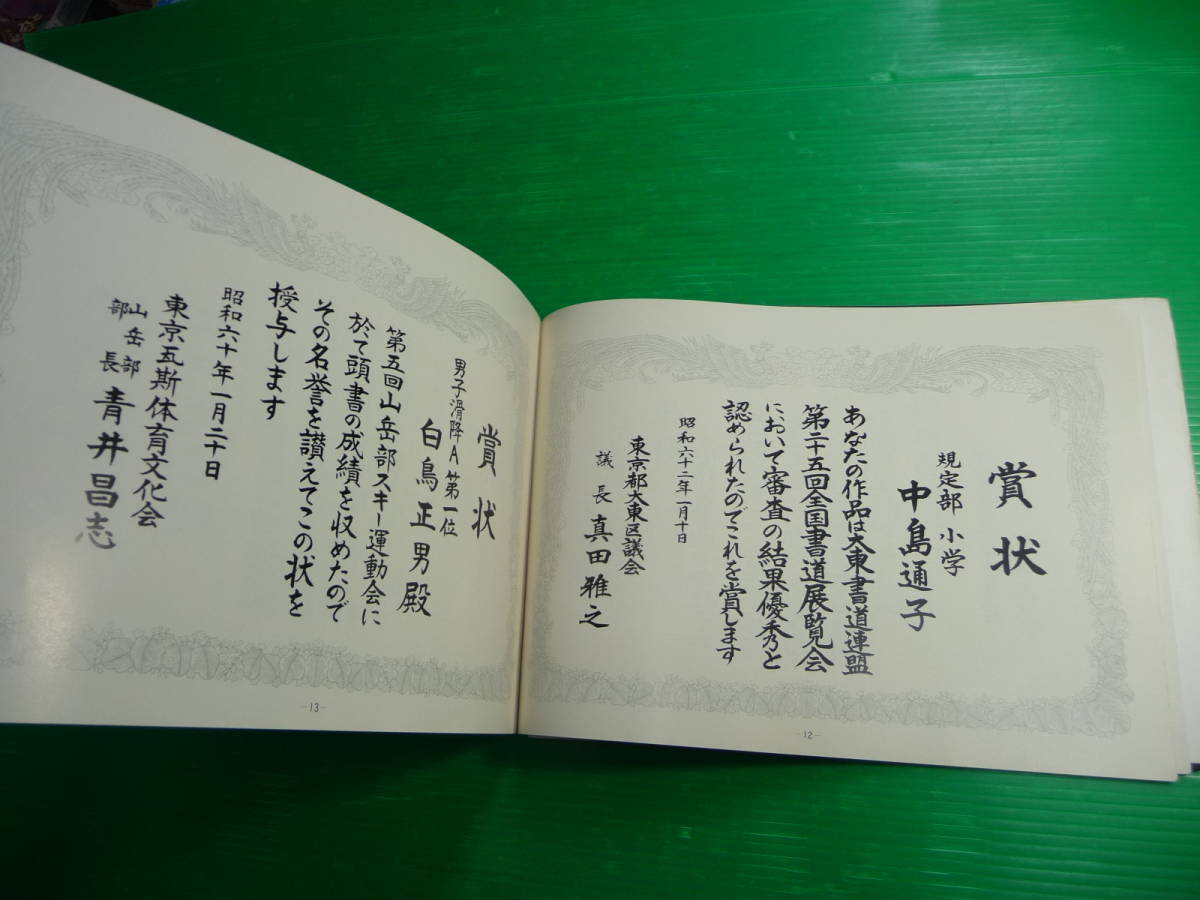 賞状
規定部 小学
中島通子
あなたの作品は大東書道連盟
第二十五回全国書道展覧会
において審査の結果優秀と
認められたのでこれを賞します
昭和六十二年一月十日
東京都大東区議会
議長 真田雅之
-12-
賞状
男子滑降A 第一位
白鳥正男殿
第五回山岳部スキー運動会に
於て頭書の成績を収めたので
その名誉を讃えてこの状を
授与します
昭和六十年一月二十日
東京瓦斯体育文化会
山岳部
部長 青井昌志
-13-